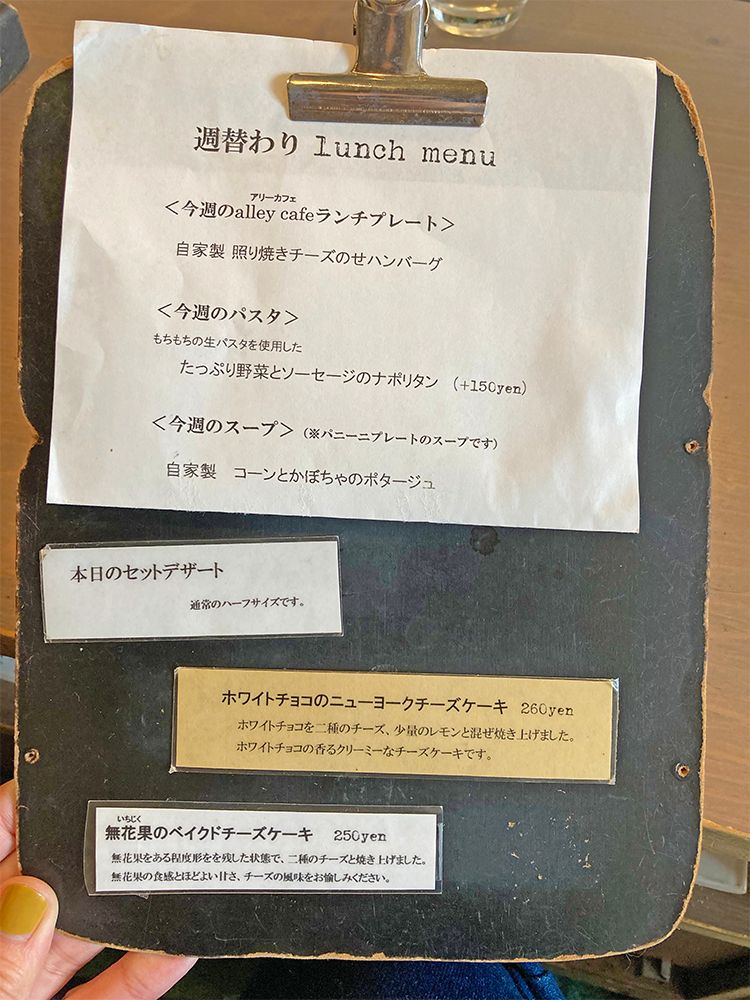 週替わり lunch menu
アリーカフェ
＜今週のalley cafeランチプレート＞
自家製 照り焼きチーズのせハンバーグ
＜今週のパスタ＞
もちもちの生パスタを使用した
たっぷり野菜とソーセージのナポリタン （+150yen）
＜今週のスープ＞（※パニーニプレートのスープです）
自家製 コーンとかぼちゃのポタージュ
本日のセットデザート
通常のハーフサイズです。
ホワイトチョコのニューヨークチーズケーキ 260yen
ホワイトチョコを二種のチーズ、少量のレモンと混ぜ焼き上げました。
ホワイトチョコの香るクリーミーなチーズケーキです。
いちじく
無花果のベイクドチーズケーキ 250yen
無花果をある程度形をを残した状態で、二種のチーズと焼き上げました。
無花果の食感とほどよい甘さ、チーズの風味をお愉しみください。